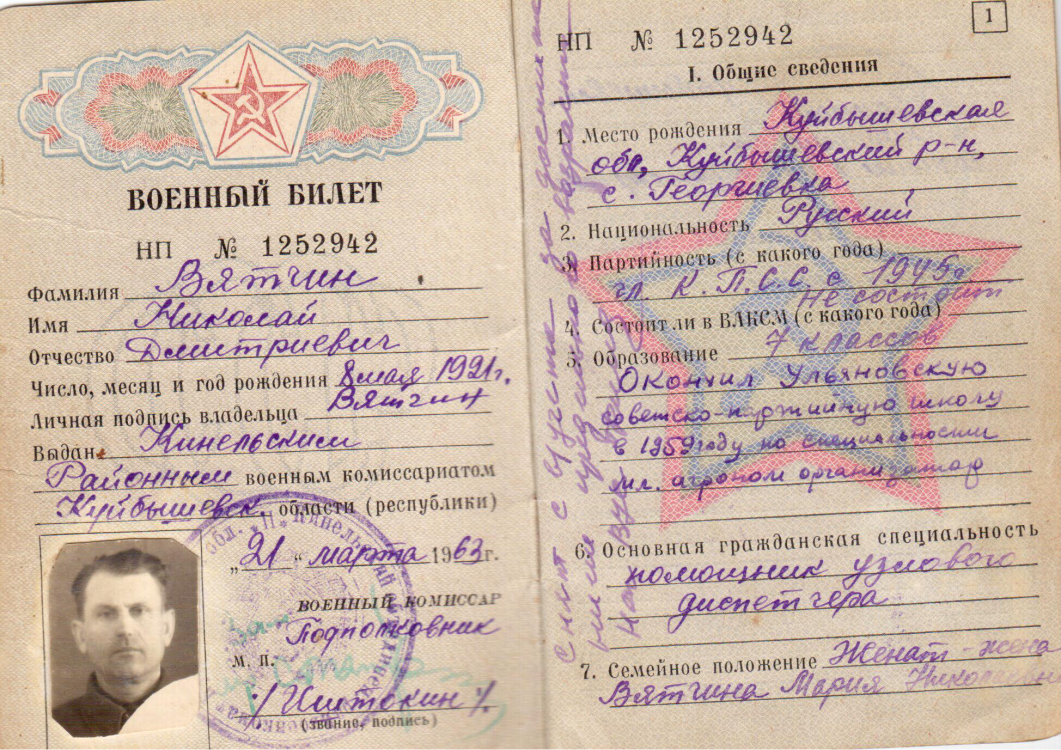 ВОЕННЫЙ БИЛЕТ
НП № 1252942
Фамилия Вятчин
Имя Николай
Отчество Дмитриевич
Число, месяц и год рождения 8 мая 1921г.
Личная подпись владельца Вятчин
Выдан Кинельским
Районным военным комиссариатом
Куйбышевск. области (республики)
„21“ марта 1963г.
ВОЕННЫЙ КОМИССАР
Подполковник
М. П.
(звание, подпись)
1
НП № 1252942
I. Общие сведения
1. Место рождения Куйбышевская
обл, Куйбышевский р-н,
с. Георгиевка
2. Национальность Русский
3. Партийность (с какого года)
чл. К.П.С.С. с 1945г
Не состоит
4. Состоит ли в ВЛКСМ (с какого года)
5. Образование 7 классов
Окончил Ульяновскую
советско-партийную школу
в 1959 году по специальности
мл. агроном организатор
6. Основная гражданская специальность
помощник узлового
диспетчера
7. Семейное положение Женат - жена
Вятчина Мария Николаевна
Снят с учета за достижением